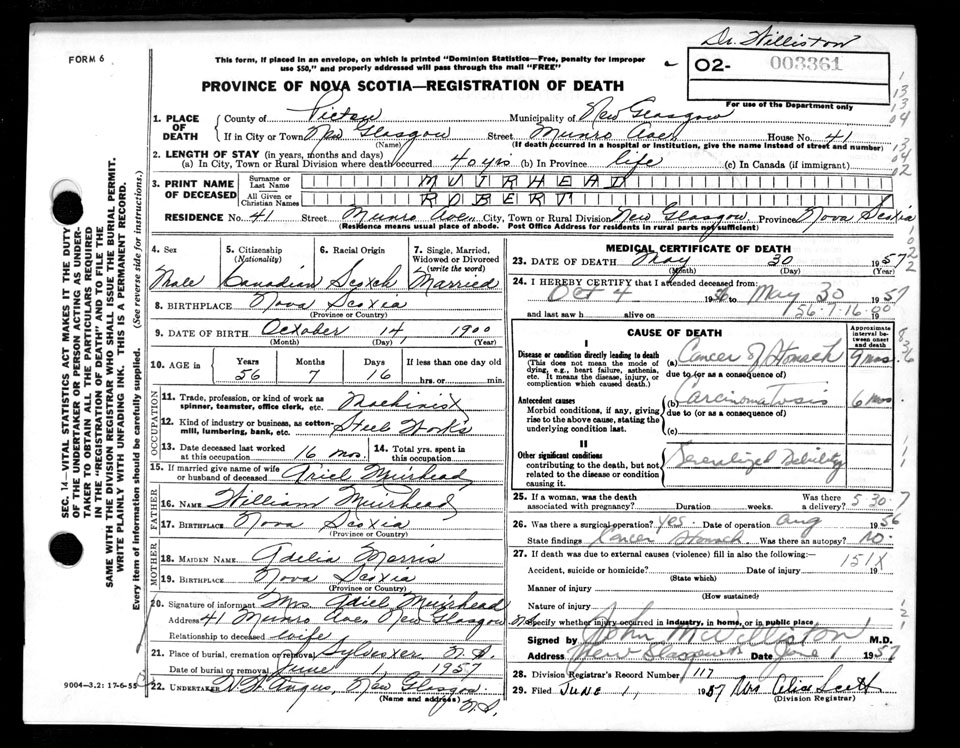 Dr. Williston
FORM 6
This form, if placed in an envelope, on which is printed "Dominion Statistics—Free, penalty for improper
use $50," and properly addressed will pass through the mail "FREE"
02- 003361
For use of the Department only
PROVINCE OF NOVA SCOTIA—REGISTRATION OF DEATH
1. PLACE OF DEATH
County of Pictou Municipality of New Glasgow
If in City or Town New Glasgow Street Munro Ave. House No. 41
(Name) (If death occurred in a hospital or institution, give the name instead of street and number)
2. LENGTH OF STAY (in years, months and days)
(a) In City, Town or Rural Division where death occurred 40 yrs (b) In Province life (c) In Canada (if immigrant)
3. PRINT NAME OF DECEASED
Surname or Last Name MUIRHEAD
All Given or Christian Names ROBERT
RESIDENCE No. 41 Street Munro Ave. City, Town or Rural Division New Glasgow Province Nova Scotia
(Residence means usual place of abode. Post Office Address for residents in rural parts not sufficient)
4. Sex Male
5. Citizenship (Nationality) Canadian
6. Racial Origin Scotch
7. Single, Married, Widowed or Divorced (write the word) Married
8. BIRTHPLACE Nova Scotia
(Province or Country)
9. DATE OF BIRTH October 14 1900
(Month) (Day) (Year)
10. AGE in Years 56 Months 7 Days 16 If less than one day old hrs. or min.
OCCUPATION
11. Trade, profession, or kind of work as spinner, teamster, office clerk, etc. Machinist
12. Kind of industry or business, as cotton-mill, lumbering, bank, etc. Steel Works
13. Date deceased last worked at this occupation 16 mos.
14. Total yrs. spent in this occupation
15. If married give name of wife or husband of deceased Ariel Muirhead
FATHER
16. NAME William Muirhead
17. BIRTHPLACE Nova Scotia
(Province or Country)
MOTHER
18. MAIDEN NAME Adelia Morris
19. BIRTHPLACE Nova Scotia
(Province or Country)
20. Signature of informant Mrs. Ariel Muirhead
Address 41 Munro Ave. New Glasgow
Relationship to deceased wife
21. Place of burial, cremation or removal Sylvester N.S.
Date of burial or removal June 1, 1957
22. UNDERTAKER Angus, New Glasgow N.S.
(Name and address)
9004-3.2: 17-6-55
SEC. 14—VITAL STATISTICS ACT MAKES IT THE DUTY
OF THE UNDERTAKER OR PERSON ACTING AS UNDER-
TAKER TO OBTAIN ALL THE PARTICULARS REQUIRED
IN THE "REGISTRATION OF DEATH" AND TO FILE THE
SAME WITH THE DIVISION REGISTRAR WHO SHALL ISSUE THE BURIAL PERMIT.
WRITE PLAINLY WITH UNFADING INK. THIS IS A PERMANENT RECORD.
Every item of information should be carefully supplied. (See reverse side for instructions.)
MEDICAL CERTIFICATE OF DEATH
23. DATE OF DEATH May 30 1957
(Month) (Day) (Year)
24. I HEREBY CERTIFY that I attended deceased from:
Oct 4 1956 to May 30 1957
and last saw h alive on 156-7-16.00
CAUSE OF DEATH
Approximate interval between onset and death
I
Disease or condition directly leading to death
(This does not mean the mode of dying, e.g., heart failure, asthenia, etc. It means the disease, injury, or complication which caused death.)
(a) Cancer of Stomach 9 mos.
due to (or as a consequence of)
Antecedent causes
Morbid conditions, if any, giving rise to the above cause, stating the underlying condition last.
(b) Carcinomatosis 6 mos
due to (or as a consequence of)
(c)
II
Other significant conditions
contributing to the death, but not related to the disease or condition causing it.
Generalized Debility
25. If a woman, was the death associated with pregnancy? Duration weeks. Was there a delivery? 5 30-7
26. Was there a surgical operation? yes. Date of operation Aug 1956
State findings Cancer Stomach Was there an autopsy? No.
27. If death was due to external causes (violence) fill in also the following:—
151X
Accident, suicide or homicide? Date of injury 19
(State which)
Manner of injury
(How sustained)
Nature of injury
Specify whether injury occurred in industry, in home, or in public place
Signed by John McWilliston M.D.
Address New Glasgow Date June 1 1957
28. Division Registrar's Record Number 117
29. Filed June 1, 1957 Mrs. Alice Scott
(Division Registrar)